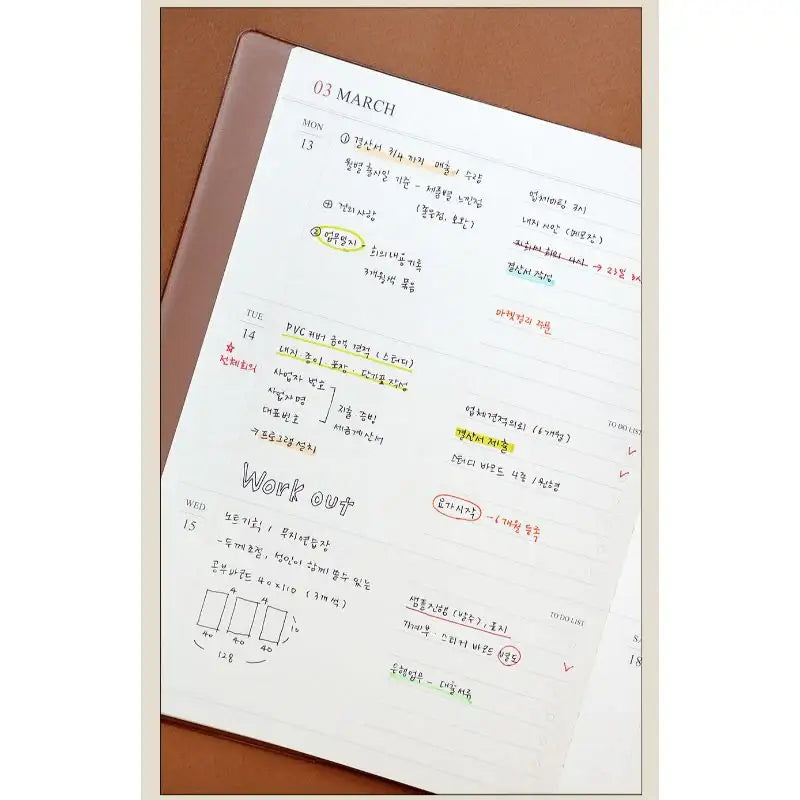 03 MARCH
MON
13
① 결산서 3/4 까지 매출 / 수량
월별 출시일 기준 - 제품별 느낀점
(좋은점, 보완)
⊕ 건의사항
② 업무일지 - 회의내용기록
3개월씩 묶음
업체미팅 3시
내지 시안 (메모장)
회의 4시 → 23일
결산서 작성
마켓컬리 주문
TUE
14
☆
전체회의
PVC 커버 금액 견적 (스터디)
내지 종이 포장 · 단가표 작성
사업자 번호
사업자명
대표번호
지출 증빙
세금계산서
→ 프로그램 설치
Work out
TO DO LIST
업체견적의뢰 (6개월)
결산서 제출
스터디 바로드 4종 /
요가시작 - 6개월 등록
WED
15
노트기획 / 무지연습장
- 두께조절, 성인이 함께 쓸수 있는
공부바로드 40x110 (3개씩)
4 4
40 40 40
10
128
TO DO LIST
샘플진행 (발주), 표지
가계부 · 스티커 바로드 별도
은행업무 - 대출서류
SA
18